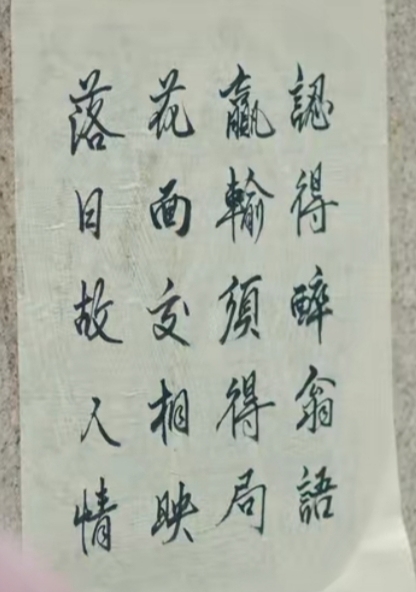 認得醉翁語
贏輸須得局
花面交相映
落日故人情